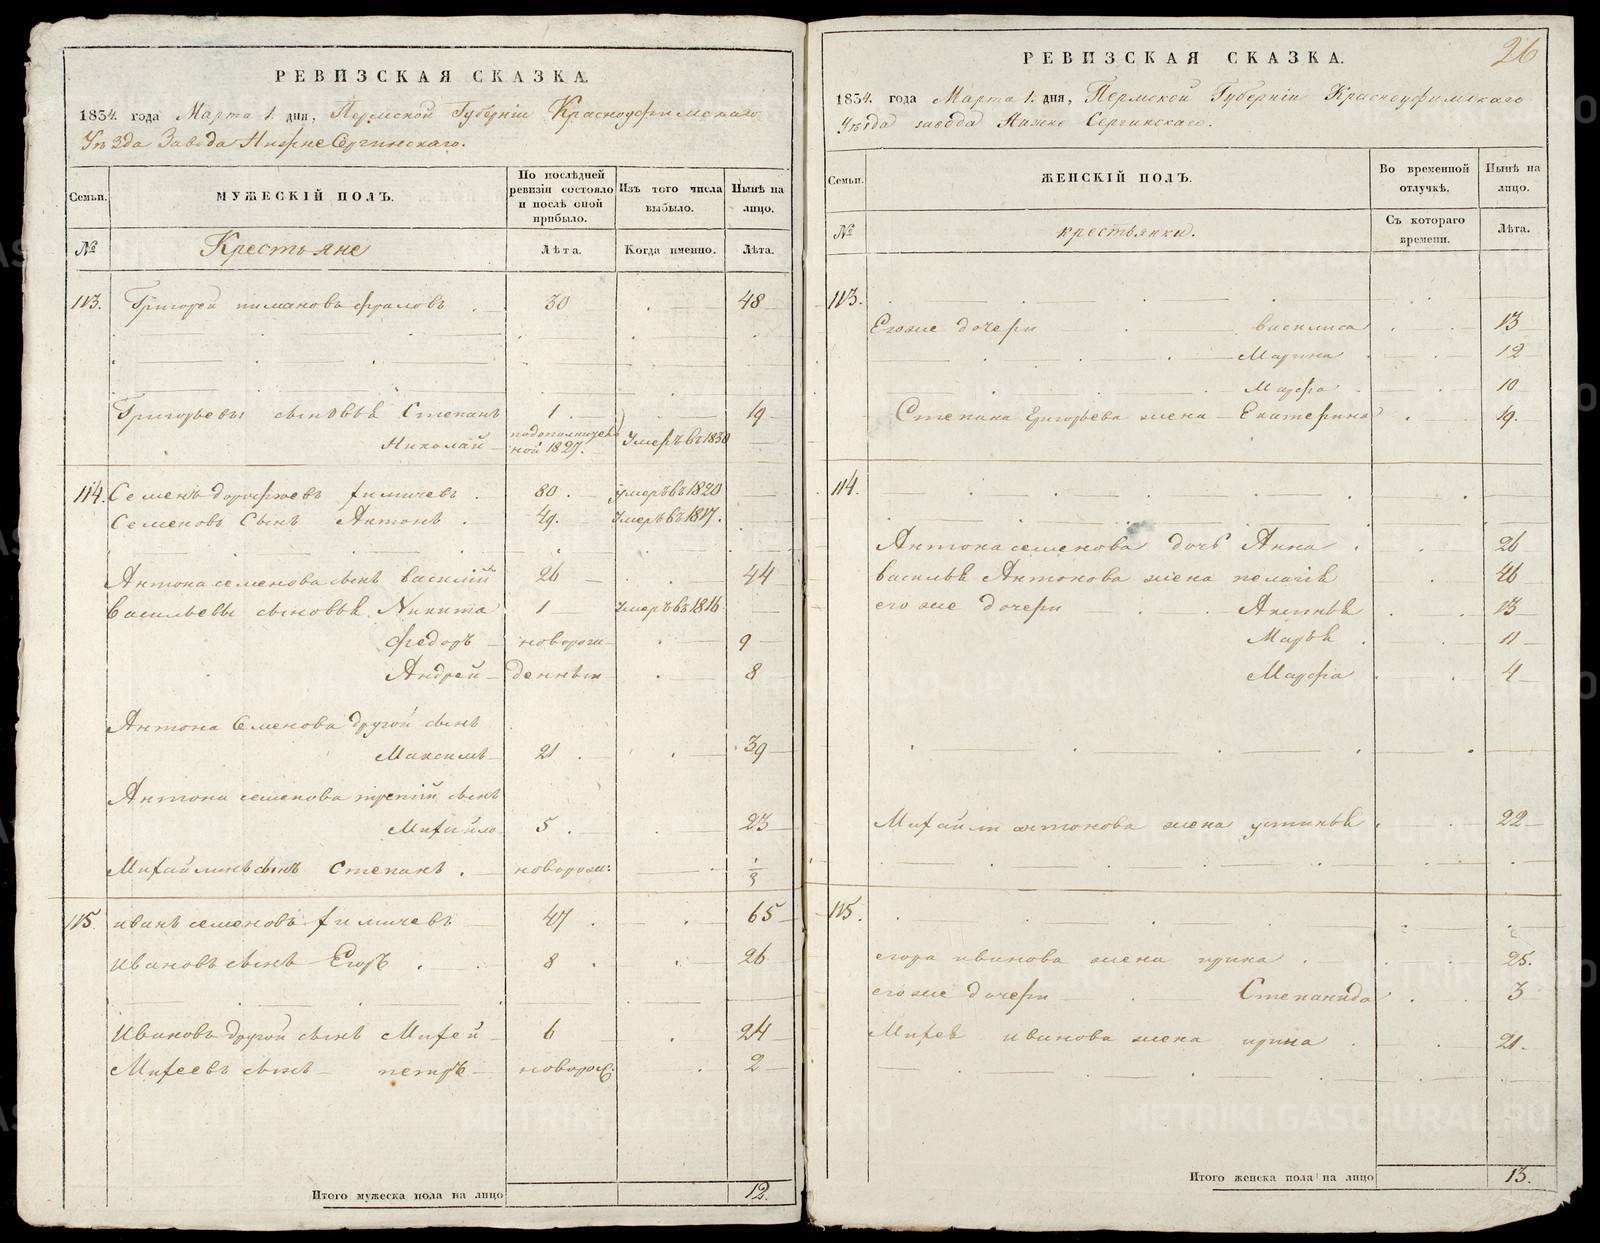 РЕВИЗСКАЯ СКАЗКА.
1834. года Марта 1. дня, Пермской Губерніи Красноуфимскаго
Уѣзда Завода НижнеСергинскаго.
Семьи.
МУЖЕСКІЙ ПОЛЪ.
По послѣдней ревизіи состояло и послѣ оной прибыло.
Изъ того числа выбыло.
Нынѣ на лицо.
№
Крестьяне
Лѣта.
Когда именно.
Лѣта.
113. Григорей пимановъ фроловъ 30 48
Григорьевы сыновья Степанъ 1 19
Николай ной 1827. Умеръ въ 1830
114. Семенъ дорофеевъ 80. умеръ въ 1820
Семеновъ Сынъ Антонъ. 49. Умеръ въ 1817.
Антона семенова сынъ василій 26 44
васильевы сыновья Никита 1 Умеръ въ 1816
федоръ новорож 9
Андрей денныи 8
Антона Семенова другой сынъ
Максимъ 21 39
Антона семенова третій сынъ
Михайло 5 23
Михайлинъ сынъ Степанъ. новорож: 1/3
115. иванъ семеновъ 47 65
Ивановъ сынъ Егоръ 8 26
Ивановъ другой сынъ Михей 6 24
Михеевъ сынъ петръ новорож: 2
Итого мужеска пола на лицо 12.
26
РЕВИЗСКАЯ СКАЗКА.
1834. года Марта 1. дня, Пермской Губерніи Красноуфимскаго
Уѣзда завода Нижне Сергинскаго.
Семьи.
ЖЕНСКІЙ ПОЛЪ.
Во временной отлучкѣ.
Нынѣ на лицо.
№
крестьянки.
Съ котораго времени.
Лѣта.
113.
Егоже дочери василиса 13
Марина 12
Марфа 10
Степана Григорьева жена Екатерина 19.
114.
Антона семенова дочь Анна 26
василья Антонова жена пелагія 46
его же дочери Аксинья 13
Марья 11
Марфа 4
Михайлы антонова жена устинья 22
115.
егора иванова жена ирина 25.
его же дочери Степанида 3
Михея иванова жена ирина 21.
Итого женска пола на лицо 13.
METRIKI.GASO-URAL.RU